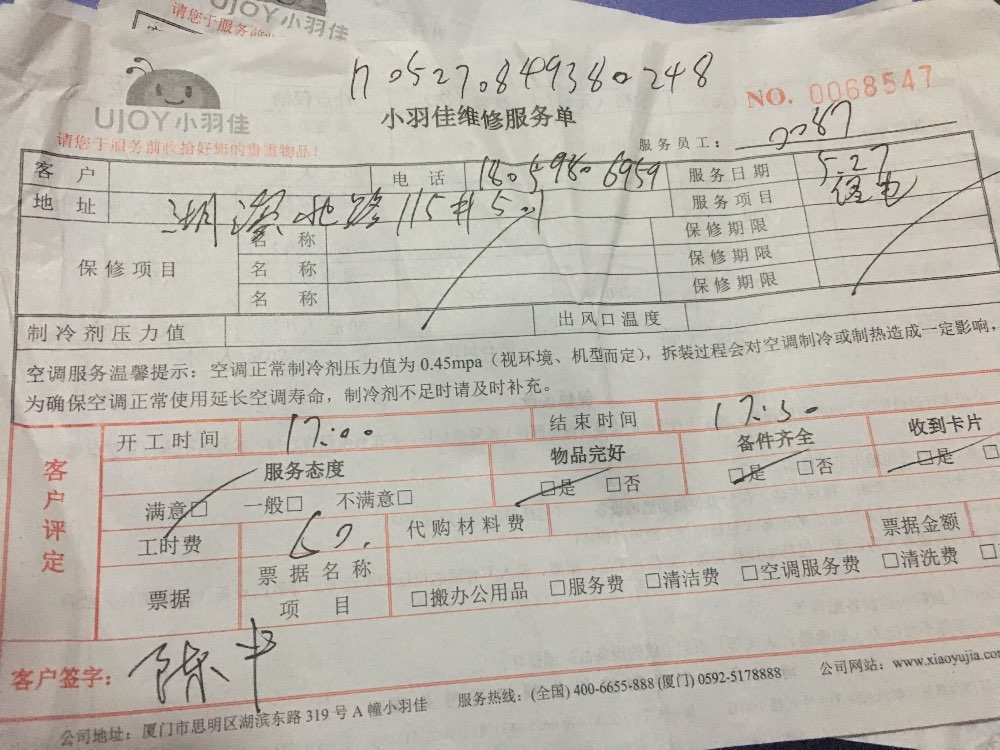 UJOY小羽佳
请您于服务前
1705270849380248
UJOY小羽佳
小羽佳维修服务单
NO. 0068547
请您于服务前收拾好您的贵重物品!
服务员工: 0087
客户 电话 18059806959 服务日期 5.27
地址 湖滨 路115# 服务项目
保修项目 名称 保修期限
名称 保修期限
名称 保修期限
制冷剂压力值 出风口温度
空调服务温馨提示:空调正常制冷剂压力值为 0.45mpa(视环境、机型而定),拆装过程会对空调制冷或制热造成一定影响,
为确保空调正常使用延长空调寿命,制冷剂不足时请及时补充。
客户评定
开工时间 17:00 结束时间 17:30
服务态度 物品完好 备件齐全 收到卡片
满意□ 一般□ 不满意□ □是 □否 □是 □否 □是 □
工时费 60. 代购材料费 票据金额
票据 票据名称 □搬办公用品 □服务费 □清洁费 □空调服务费 □清洗费 □
项目
客户签字: 陈
公司地址:厦门市思明区湖滨东路 319 号 A 幢小羽佳 服务热线:(全国) 400-6655-888 (厦门) 0592-5178888 公司网站:www.xiaoyujia.com